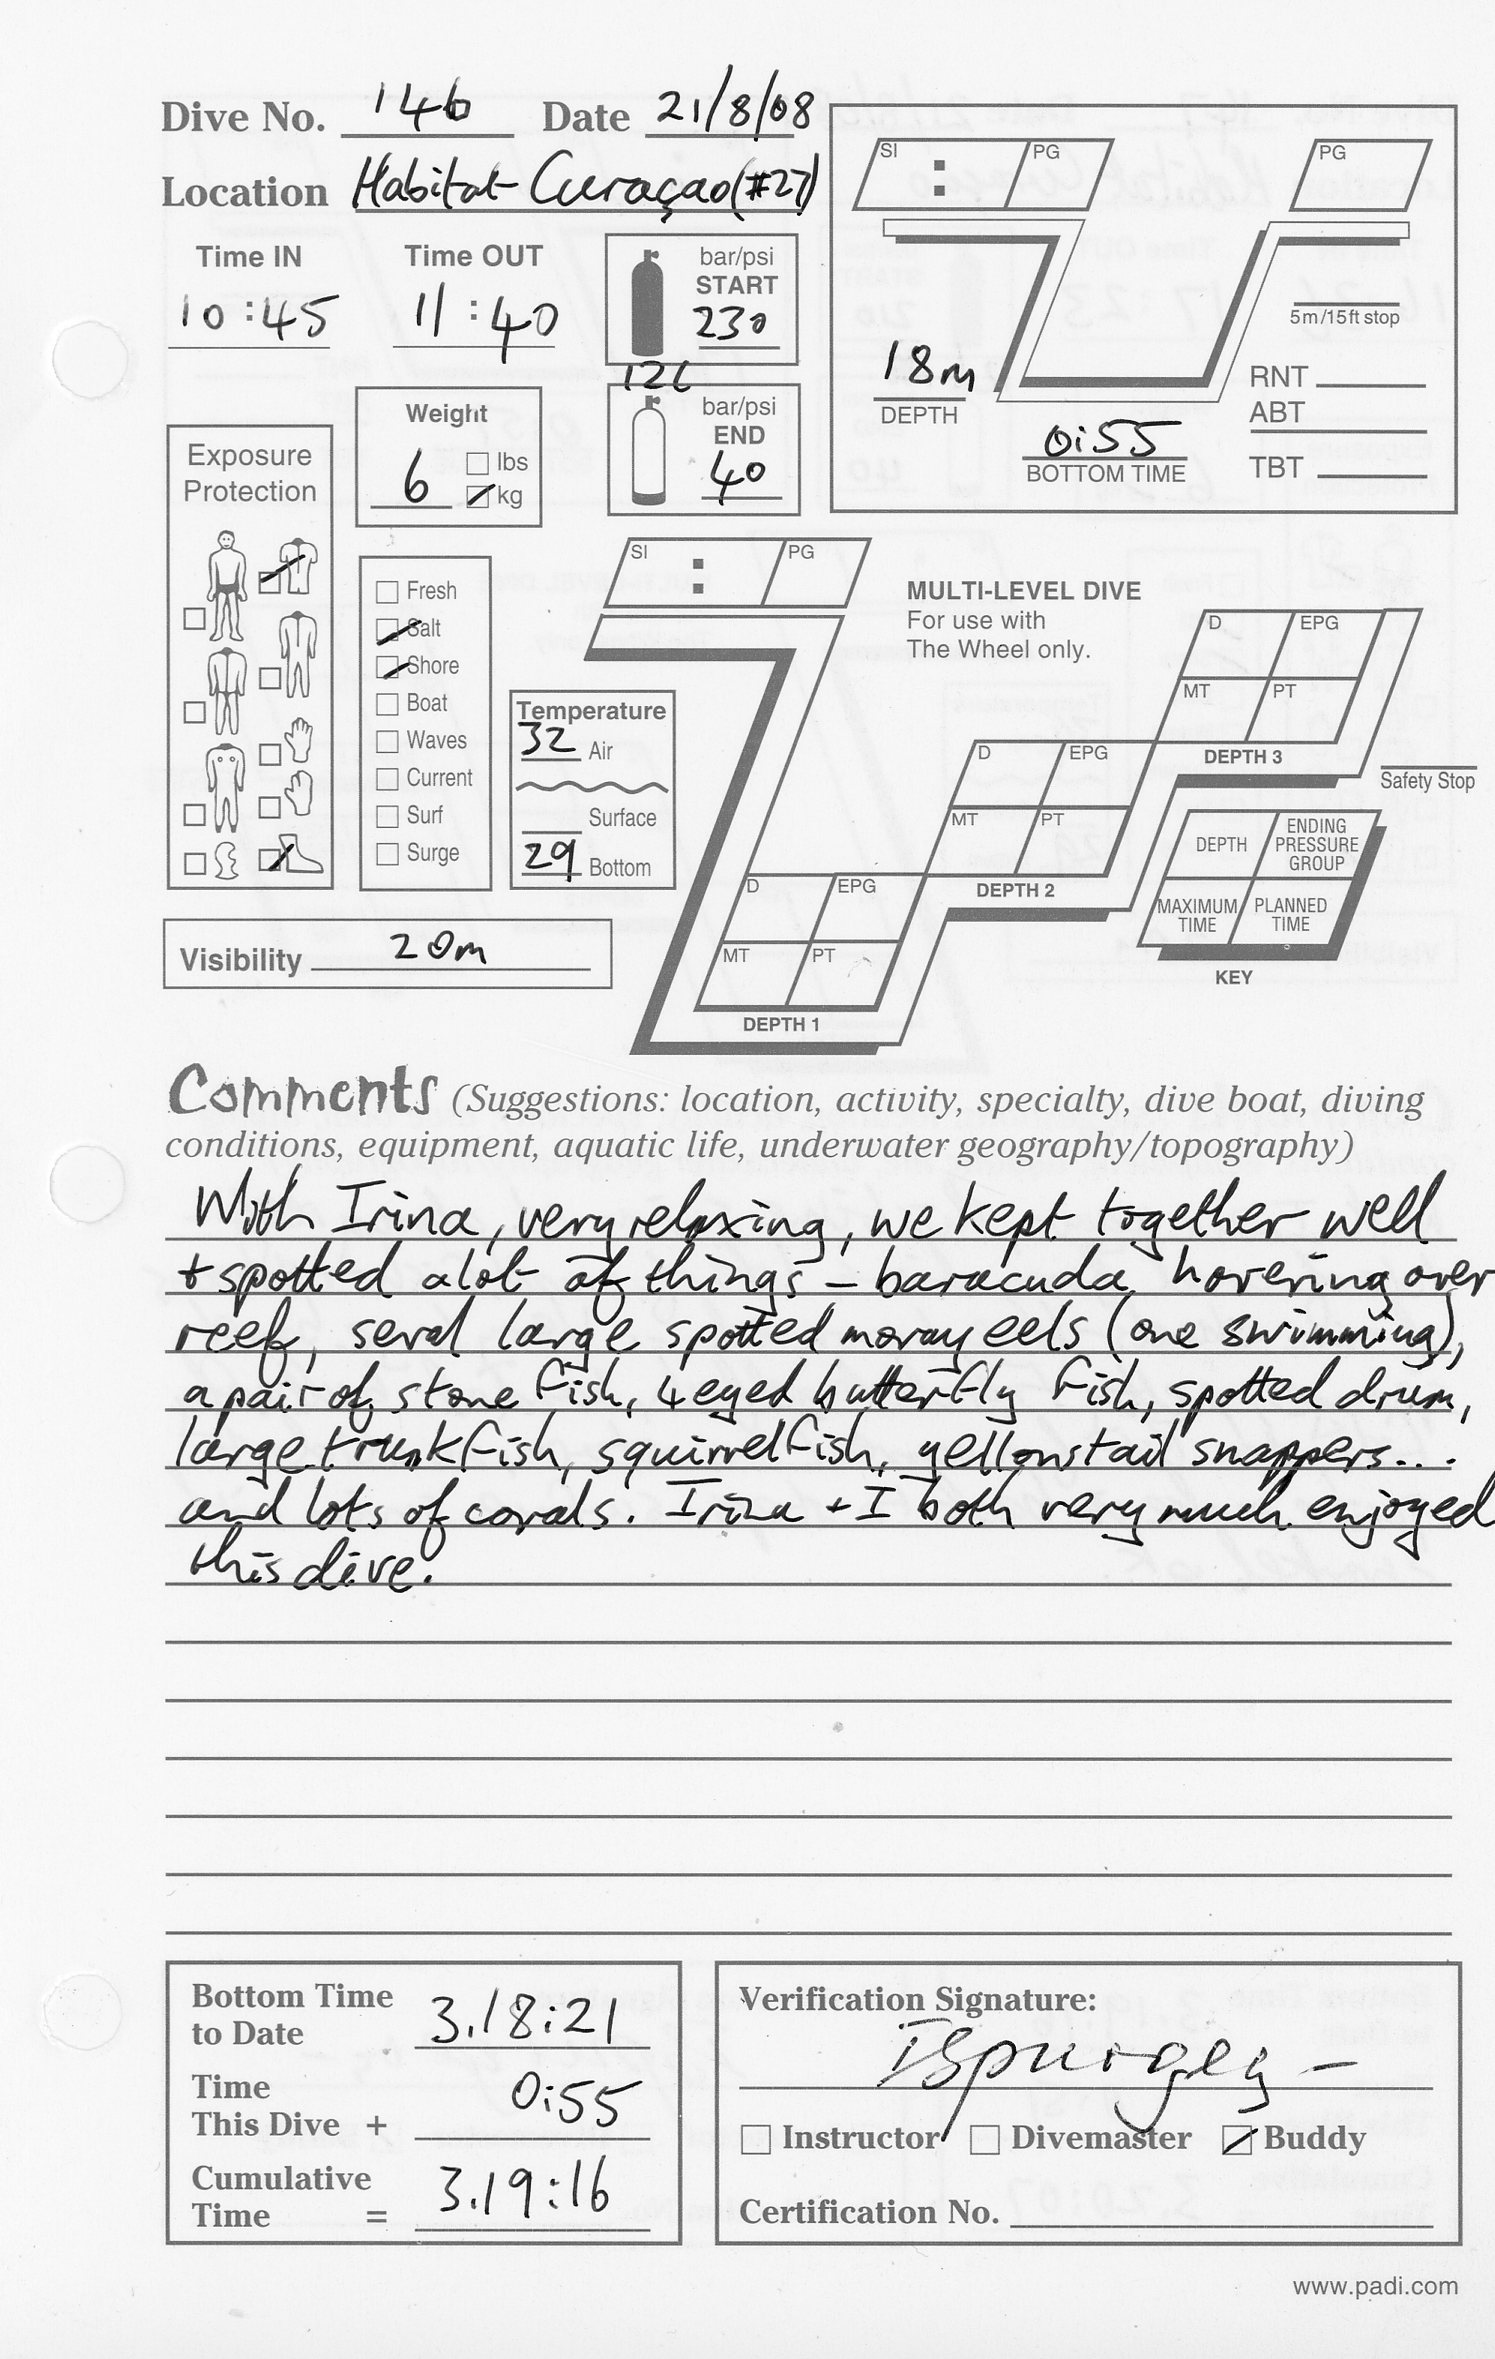 Dive No. 146 Date 21/8/08
Location Habitat Curaçao (#27)
Time IN Time OUT
10:45 11:40
bar/psi
START
230
12L
bar/psi
END
40
Weight
6
lbs
kg
Exposure
Protection
Fresh
Salt
Shore
Boat
Waves
Current
Surf
Surge
Temperature
32 Air
Surface
29 Bottom
Visibility 20m
SI : PG
PG
5m/15ft stop
18m
DEPTH
0:55
BOTTOM TIME
RNT
ABT
TBT
SI : PG
MULTI-LEVEL DIVE
For use with
The Wheel only.
D EPG
MT PT
DEPTH 3
Safety Stop
D EPG
MT PT
DEPTH 2
D EPG
MT PT
DEPTH 1
DEPTH
ENDING
PRESSURE
GROUP
MAXIMUM
TIME
PLANNED
TIME
KEY
Comments (Suggestions: location, activity, specialty, dive boat, diving
conditions, equipment, aquatic life, underwater geography/topography)
With Irina, very relaxing, we kept together well
+ spotted a lot of things – baracuda hovering over
reef, sevral large spotted moray eels (one swimming),
a pair of stone fish, 4 eyed butterfly fish, spotted drum,
large trunkfish, squirrelfish, yellowstail snappers...
and lots of corals. Irina + I both very much enjoyed
this dive.
Bottom Time
to Date 3.18:21
Time
This Dive + 0:55
Cumulative
Time = 3.19:16
Verification Signature:
Instructor Divemaster Buddy
Certification No.
www.padi.com